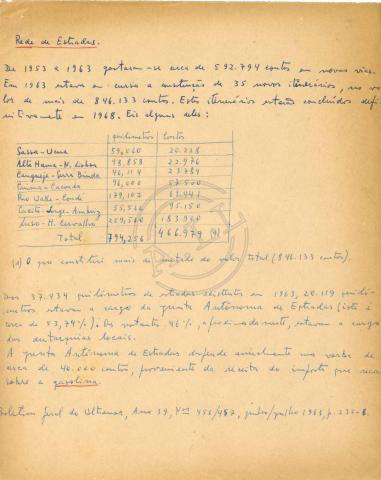 Rede de Estradas.
De 1953 a 1963 gastaram-se cerca de 592.794 contos em novas vias.
Em 1963 estava em curso a construção de 35 novos itinerários, no va
lor de mais de 846.133 contos. Estes itinerários estarão concluídos defi
nitivamente em 1968. Eis alguns deles:
quilómetros Contos
Sassa-Uena 59,060 20.228
Alto Hama-N. Lisboa 98,858 22.976
Cangueje-Serra Binda 46,114 23.784
Cacula-Caconda 96,000 57.500
Rio Valle-Condi 179,102 63.443
Caxito-Jorge-Ambriz 55,526 95.150
Luso-H. Carvalho 259,580 183.900
Total 794,256 466.979 (1)
(1) O que constitui mais de metade do valor total (846.133 contos).
Dos 37.434 quilómetros de estradas existentes em 1963, 20.119 quiló-
metros estavam a cargo da Junta Autónoma de Estradas (isto é
cerca de 53,74%). Os restantes 46%, aproximadamente, estavam a cargo
das autarquias locais.
A Junta Autónoma de Estradas dispende anualmente uma verba de
cerca de 40.000 contos, proveniente da receita do imposto que recai
sobre a gasolina.
Boletim Geral do Ultramar, Ano 39, Nos 456/457, junho/julho 1963, p. 235-6.